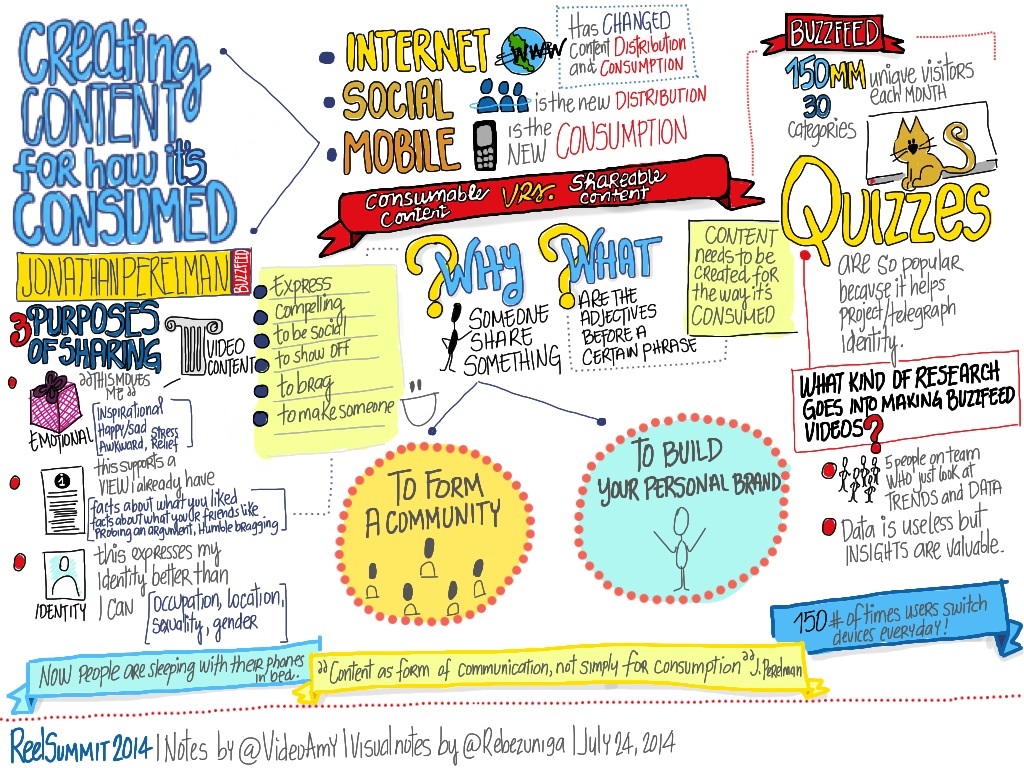 Creating
CONTENT
for how it's
CONSUMED
JONATHAN PERELMAN
BUZZFEED
INTERNET
WWW
Has CHANGED
content Distribution
and CONSUMPTION
SOCIAL
is the new DISTRIBUTION
MOBILE
is the
NEW CONSUMPTION
Consumable
content
VRS.
Shareable
content
BUZZFEED
150MM unique visitors
each MONTH
30
categories
Quizzes
ARE so popular
because it helps
project/telegraph
Identity.
WHAT KIND OF RESEARCH
GOES INTO MAKING BUZZFEED
VIDEOS?
5 people on team
WHO just look at
TRENDS and DATA
Data is useless but
INSIGHTS are valuable.
150 # of times users switch
devices everyday!
3 PURPOSES
OF SHARING
VIDEO
CONTENT
"THIS MOVES
ME"
EMOTIONAL
Inspirational
Happy/sad
Awkward, Stress
Relief
1
this supports a
VIEW I already have
facts about what you liked
facts about what your friends like
Probing an argument, Humble bragging
IDENTITY
this expresses my
Identity better than
I can
Occupation, location,
sexuality, gender
Express
compelling
to be social
to show off
to brag
to make someone
? WHY
SOMEONE
SHARE
SOMETHING
? WHAT
ARE THE
ADJECTIVES
BEFORE A
CERTAIN PHRASE
CONTENT
needs to be
created for
the way it's
CONSUMED
TO FORM
A COMMUNITY
TO BUILD
YOUR PERSONAL BRAND
NOW PEOPLE ARE sleeping with their phones
in bed.
"Content as form of communication, not simply for consumption" J. Perelman
ReelSummit 2014 | Notes by @VideoAmy | Visual notes by @Rebezuniga | July 24, 2014